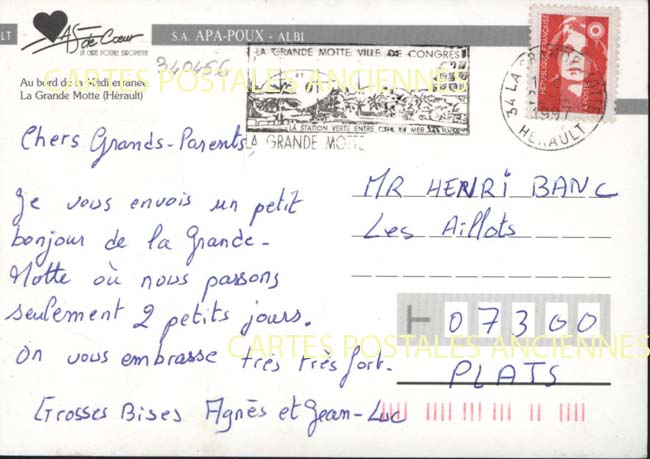 LT
AS de Cœur
LA CARTE POSTALE EUROPEENNE
S.A. APA-POUX - ALBI
340456
Au bord de la Méditerranée
La Grande Motte (Hérault)
LA GRANDE MOTTE VILLE DE CONGRES
LA STATION VERTE ENTRE CIEL ET MER
LA GRANDE MOTTE
34 LA GRANDE MOTTE
1997
HERAULT
REPUBLIQUE FRANÇAISE
LA POSTE
CARTES POSTALES ANCIENNES
Chers Grands-Parents,
Je vous envois un petit
bonjour de la Grande-
Motte où nous passons
seulement 2 petits jours.
On vous embrasse très très fort.
Grosses Bises Agnès et Jean-Luc
MR HENRI BANC
Les Aillots
07300
PLATS
CARTES POSTALES ANCIENNES